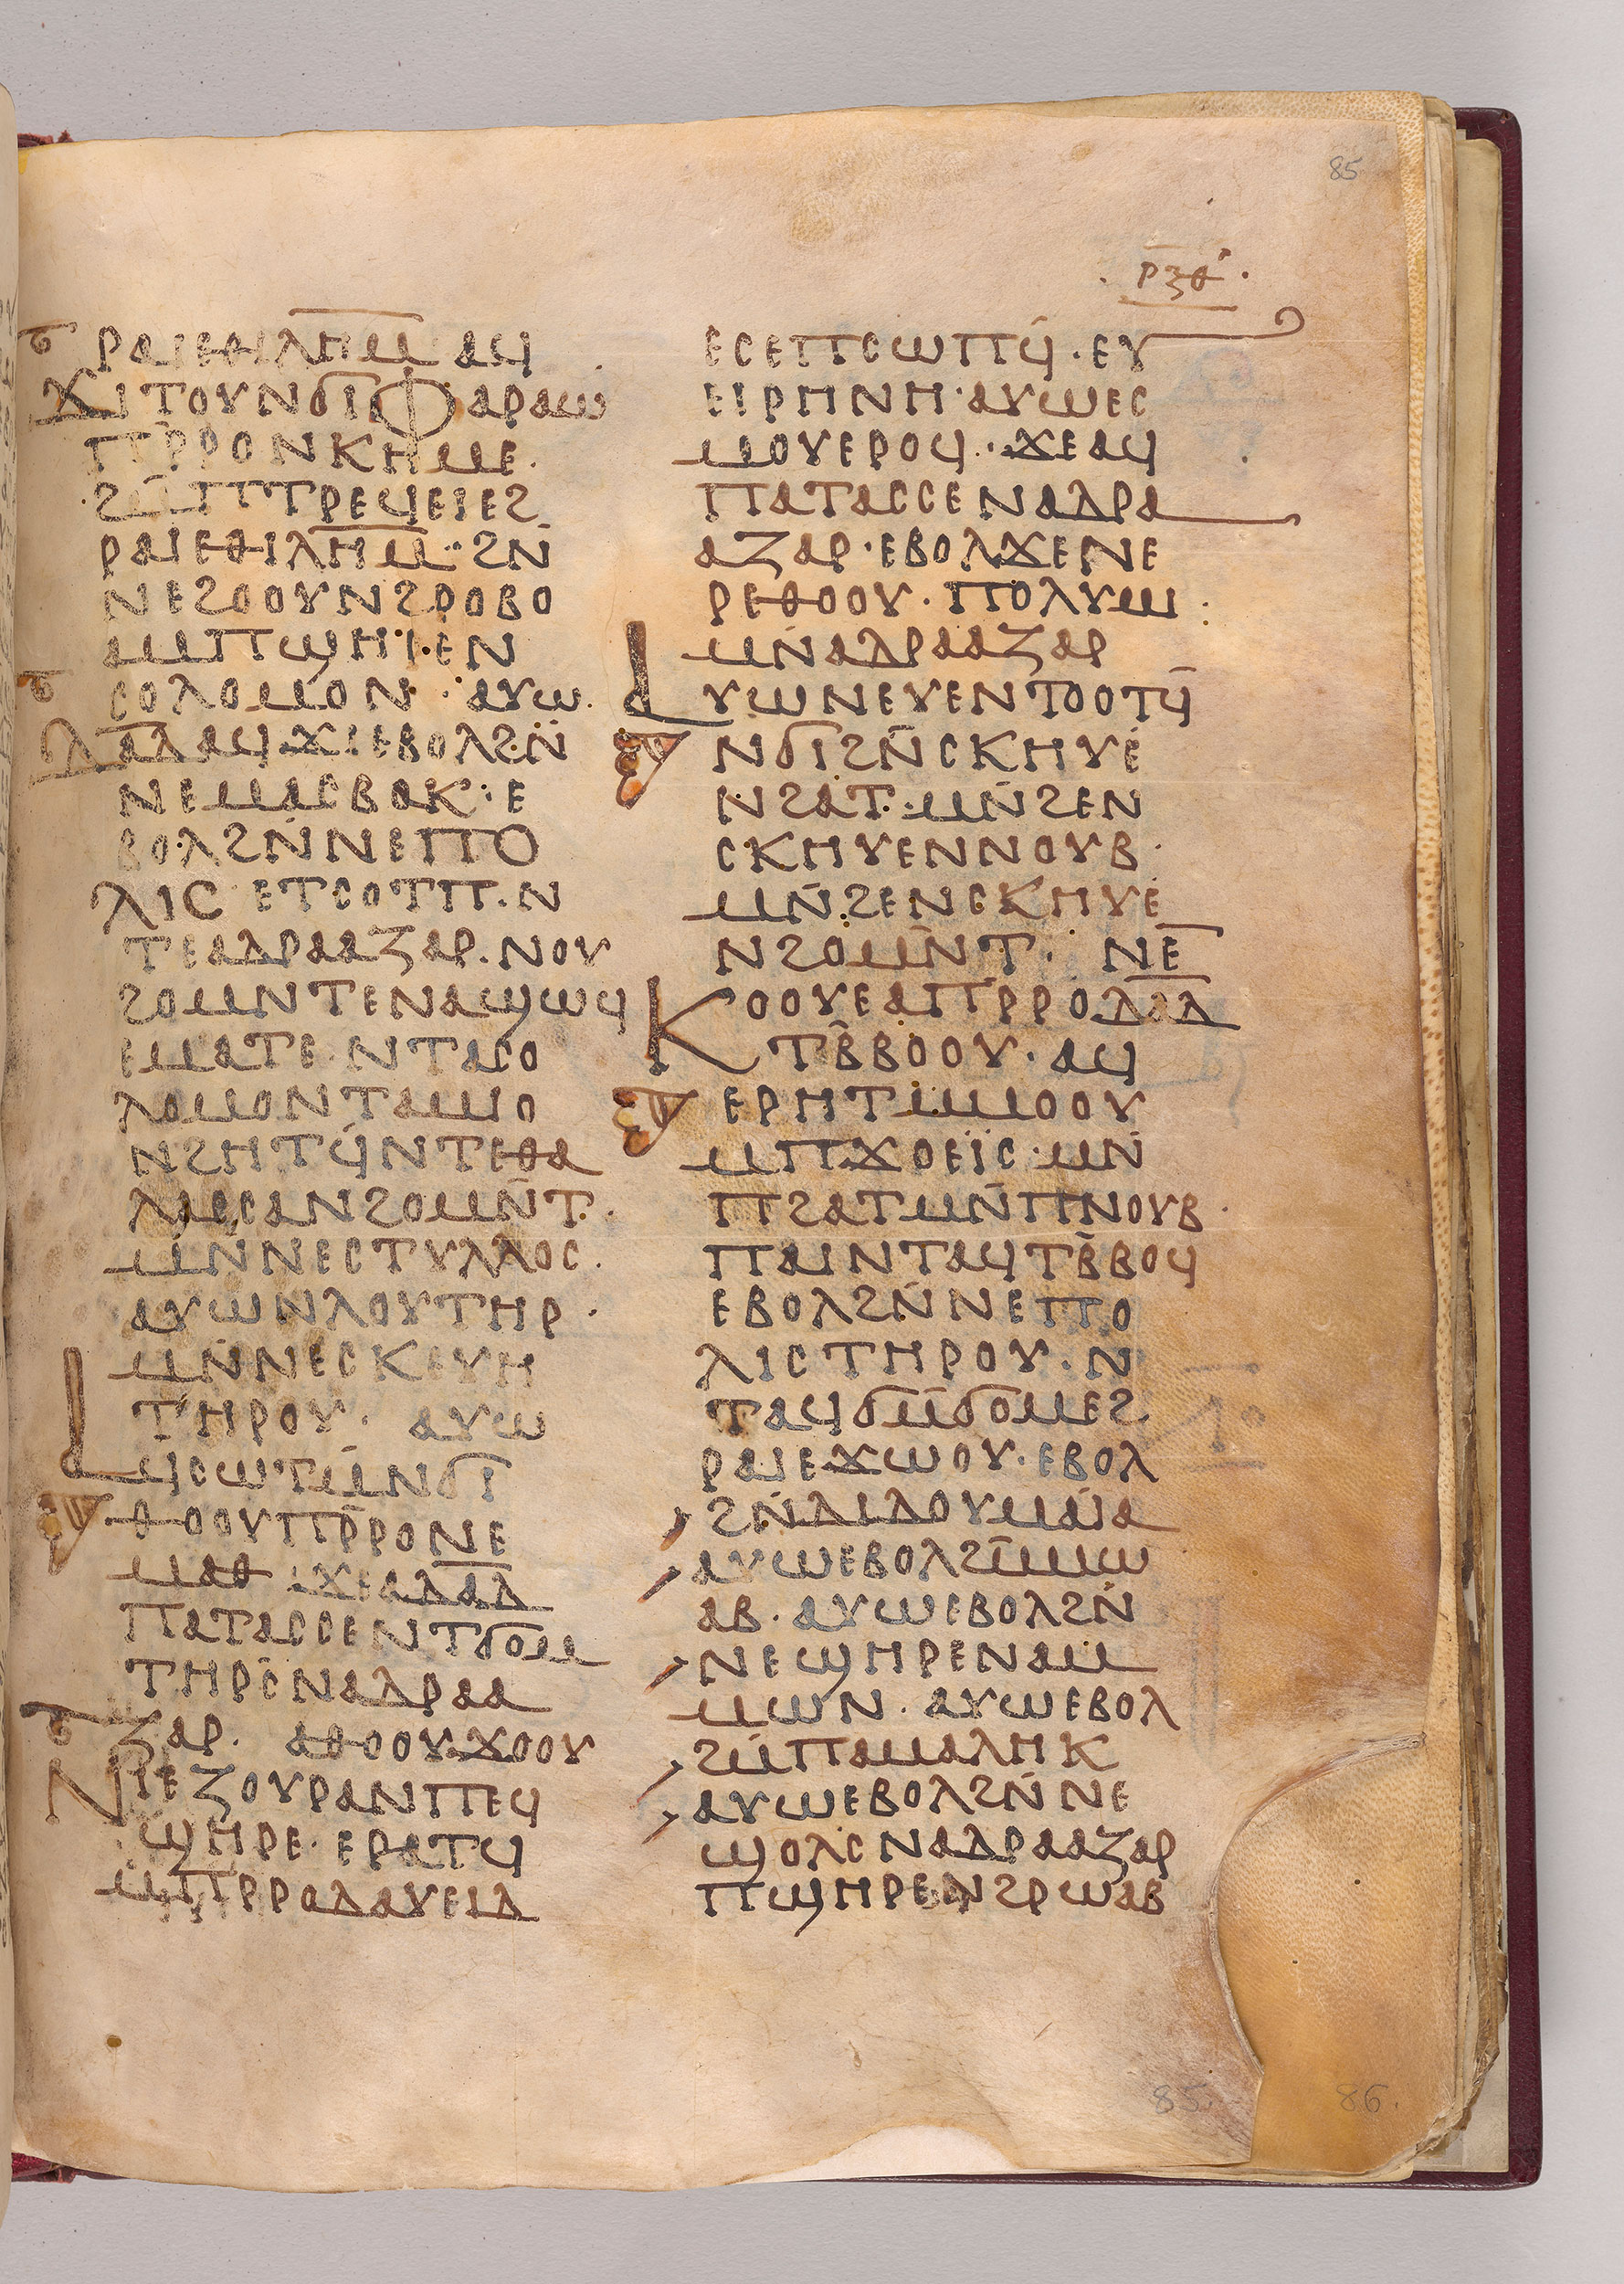 85
ⲣⲝⲑ
ϩⲣⲁⲓⲉⲑⲓⲗⲏⲙ ⲁϥ
ϫⲓⲧⲟⲩⲛϭⲓⲫⲁⲣⲁⲱ
ⲡⲣ̄ⲣⲟⲛⲕⲏⲙⲉ·
ϩⲙ̄ⲡⲧⲣⲉϥⲉⲓⲉϩ
ⲣⲁⲓⲉⲑⲓⲗⲏⲙ· ϩⲛ̄
ⲛⲉϩⲟⲟⲩⲛϩⲣⲟⲃⲟ
ⲁⲙⲡϣⲏⲣⲉⲛ
ⲥⲟⲗⲟⲙⲟⲛ· ⲁⲩⲱ
ⲇⲁ̄ⲇⲁϥϫⲓⲉⲃⲟⲗϩⲛ̄
ⲛⲉⲙⲁⲥⲃⲁⲕ· ⲉ
ⲃⲟⲗϩⲛ̄ⲛⲉⲡⲟ
ⲗⲓⲥ ⲉⲧⲥⲟⲧⲡ· ⲛ
ⲧⲉⲁⲇⲣⲁⲁⲍⲁⲣ· ⲛⲟⲩ
ϩⲟⲙⲛⲧⲉⲛⲁϣⲱϥ
ⲉⲙⲁⲧⲉ· ⲛⲧⲁⲥⲟ
ⲗⲟⲙⲟⲛⲧⲁⲙⲓⲟ
ⲛϩⲏⲧϥ̄ⲛⲧⲉⲑⲁ
ⲗⲁⲥⲥⲁⲛϩⲟⲙⲛ̄ⲧ·
ⲙⲛ̄ⲛⲉⲥⲧⲩⲗⲗⲟⲥ·
ⲁⲩⲱⲛⲗⲟⲩⲧⲏⲣ·
ⲙⲛ̄ⲛⲉⲥⲕⲉⲩⲏ
ⲧⲏⲣⲟⲩ· ⲁⲩⲱ
ⲁϥⲥⲱⲧⲙ̄ⲛϭⲓ
ⲑⲟⲟⲩⲡⲣ̄ⲣⲟⲛⲉ
ⲙⲁⲑ ϫⲉⲁⲇⲁ̄ⲇ
ⲡⲁⲧⲁⲥⲥⲉⲛⲧϭⲟⲙ
ⲧⲏⲣⲥ̄ⲛⲁⲇⲣⲁⲁ
ⲍⲁⲣ· ⲁⲑⲟⲟⲩϫⲟⲟⲩ
ⲛⲓⲉⲍⲟⲩⲣⲁⲛⲡⲉϥ
ϣⲏⲣⲉ· ⲉⲣⲁⲧϥ
ⲙ̄ⲡⲣ̄ⲣⲟⲇⲁⲩⲉⲓⲇ
ⲉⲥⲉⲡⲥⲱⲡϥ̄· ⲉⲩ
ⲉⲓⲣⲏⲛⲏ· ⲁⲩⲱⲉⲥ
ⲙⲟⲩⲉⲣⲟϥ· ϫⲉⲁϥ
ⲡⲁⲧⲁⲥⲥⲉⲛⲁⲇⲣⲁ
ⲁⲍⲁⲣ· ⲉⲃⲟⲗϫⲉⲛⲉ
ⲣⲉⲑⲟⲟⲩ· ⲡⲟⲗⲩⲙ
ⲙⲛⲁⲇⲣⲁⲁⲍⲁⲣ
ⲁⲩⲱⲛⲉⲩⲉⲛⲧⲟⲟⲧϥ̄
ⲛϭⲓϩⲛ̄ⲥⲕⲏⲩⲉ
ⲛϩⲁⲧ· ⲙⲛ̄ϩⲉⲛ
ⲥⲕⲏⲩⲉⲛⲛⲟⲩⲃ·
ⲙⲛ̄ϩⲉⲛⲥⲕⲏⲩⲉ
ⲛϩⲟⲙⲛ̄ⲧ· ⲛⲉ̄
ⲕⲟⲟⲩⲉⲁⲡⲣ̄ⲣⲟⲇⲁ̄ⲇ
ⲧⲃ̄ⲃⲟⲟⲩ· ⲁϥ
ⲉⲣⲏⲧⲙ̄ⲙⲟⲟⲩ
ⲙⲡϫⲟⲉⲓⲥ· ⲙⲛ̄
ⲡϩⲁⲧⲙⲛ̄ⲡⲛⲟⲩⲃ·
ⲡⲁⲓⲛⲧⲁϥⲧⲃ̄ⲃⲟϥ
ⲉⲃⲟⲗϩⲛ̄ⲛⲉⲡⲟ
ⲗⲓⲥⲧⲏⲣⲟⲩ· ⲛ
ⲧⲁϥϭⲙ̄ϭⲟⲙⲉϩ
ⲣⲁⲓⲉϫⲱⲟⲩ· ⲉⲃⲟⲗ
ϩⲛ̄ⲇⲓⲇⲟⲩⲙⲁⲓⲁ
ⲁⲩⲱⲉⲃⲟⲗϩⲙ̄ⲙⲱ
ⲁⲃ· ⲁⲩⲱⲉⲃⲟⲗϩⲛ̄
ⲛⲉϣⲏⲣⲉⲛⲁⲙ
ⲙⲱⲛ· ⲁⲩⲱⲉⲃⲟⲗ
ϩⲙ̄ⲡⲁⲙⲁⲗⲏⲕ
ⲁⲩⲱⲉⲃⲟⲗϩⲛ̄ⲛⲉ
ϣⲟⲗⲥⲛⲁⲇⲣⲁⲁⲍⲁⲣ
ⲡϣⲏⲣⲉⲛϩⲣⲱⲁⲃ
85.
86.